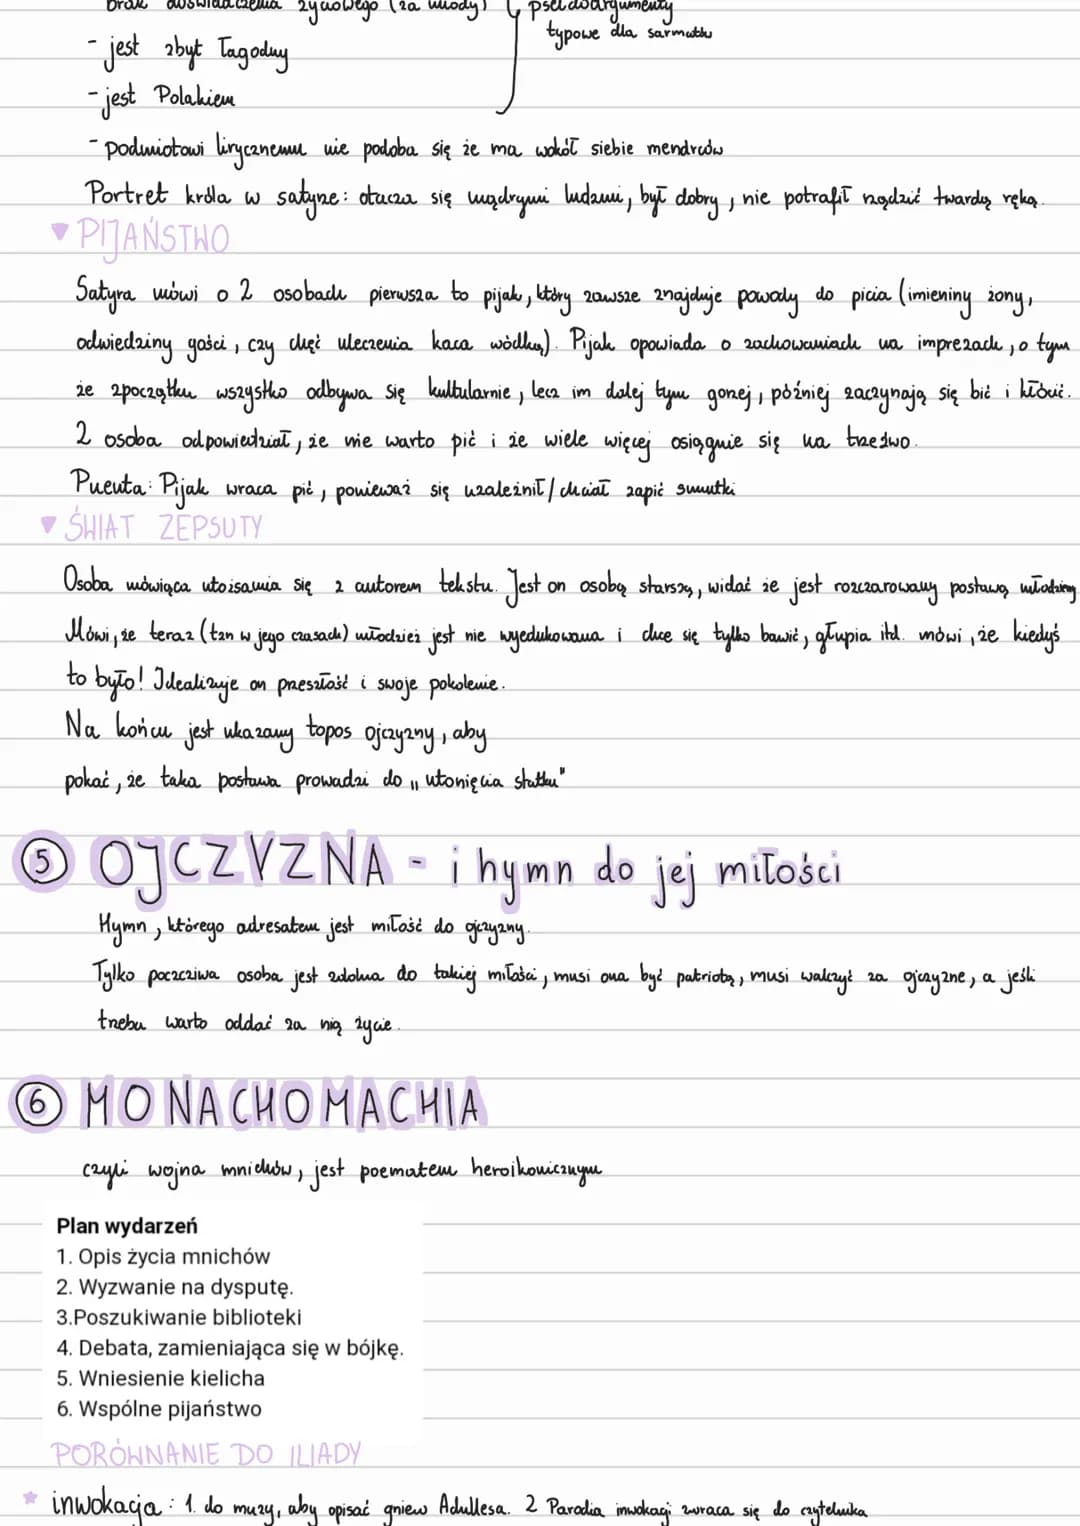 brak doświadczenia życiowego (za młody) pseudoargumenty
typowe dla sarmatów
- jest zbyt łagodny
- jest Polakiem
- podmiotowi lirycznemu nie podoba się że ma wokół siebie mendrców
Portret króla w satyrze: otacza się mądrymi ludzmi, był dobry, nie potrafił rządzić twardą ręką.
▼ PIJAŃSTWO
Satyra mówi o 2 osobach pierwsza to pijak, który zawsze znajduje powody do picia (imieniny żony,
odwiedziny gości, czy chęć uleczenia kaca wódką). Pijak opowiada o zachowaniach na imprezach, o tym
że zpoczątku wszystko odbywa się kultularnie, lecz im dalej tym gorzej, później zaczynają się bić i kłócić.
2 osoba odpowiedział, że nie warto pić i że wiele więcej osiągnie się na trzeźwo.
Puenta: Pijak wraca pić, ponieważ się uzależnił/chciał zapić smutki
▼ ŚWIAT ZEPSUTY
Osoba mówiąca utożsamia się z autorem tekstu. Jest on osobą starszą, widać że jest rozczarowany postawą młodzieży
Mówi, że teraz (tzn w jego czasach) młodzież jest nie wyedukowana i chce się tylko bawić, głupia itd. mówi, że kiedyś
to było! Idealizuje on przeszłość i swoje pokolenie.
Na końcu jest ukazany topos ojczyzny, aby
pokać, że taka postawa prowadzi do „utonięcia statku"
⑤ OJCZYZNA - i hymn do jej miłości
Hymn, którego adresatem jest miłość do ojczyzny.
Tylko poczciwa osoba jest zdolna do takiej miłości, musi ona być patriotą, musi walczyć za ojczyzne, a jeśli
trzeba warto oddać za nią życie.
⑥ MONACHOMACHIA
czyli wojna mnichów, jest poematem heroikomicznym
Plan wydarzeń
1. Opis życia mnichów
2. Wyzwanie na dysputę.
3.Poszukiwanie biblioteki
4. Debata, zamieniająca się w bójkę.
5. Wniesienie kielicha
6. Wspólne pijaństwo
PORÓWNANIE DO ILIADY
★ inwokacja: 1. do muzy, aby opisać gniew Achillesa. 2 Parodia inwokacji zwraca się do czytelnika